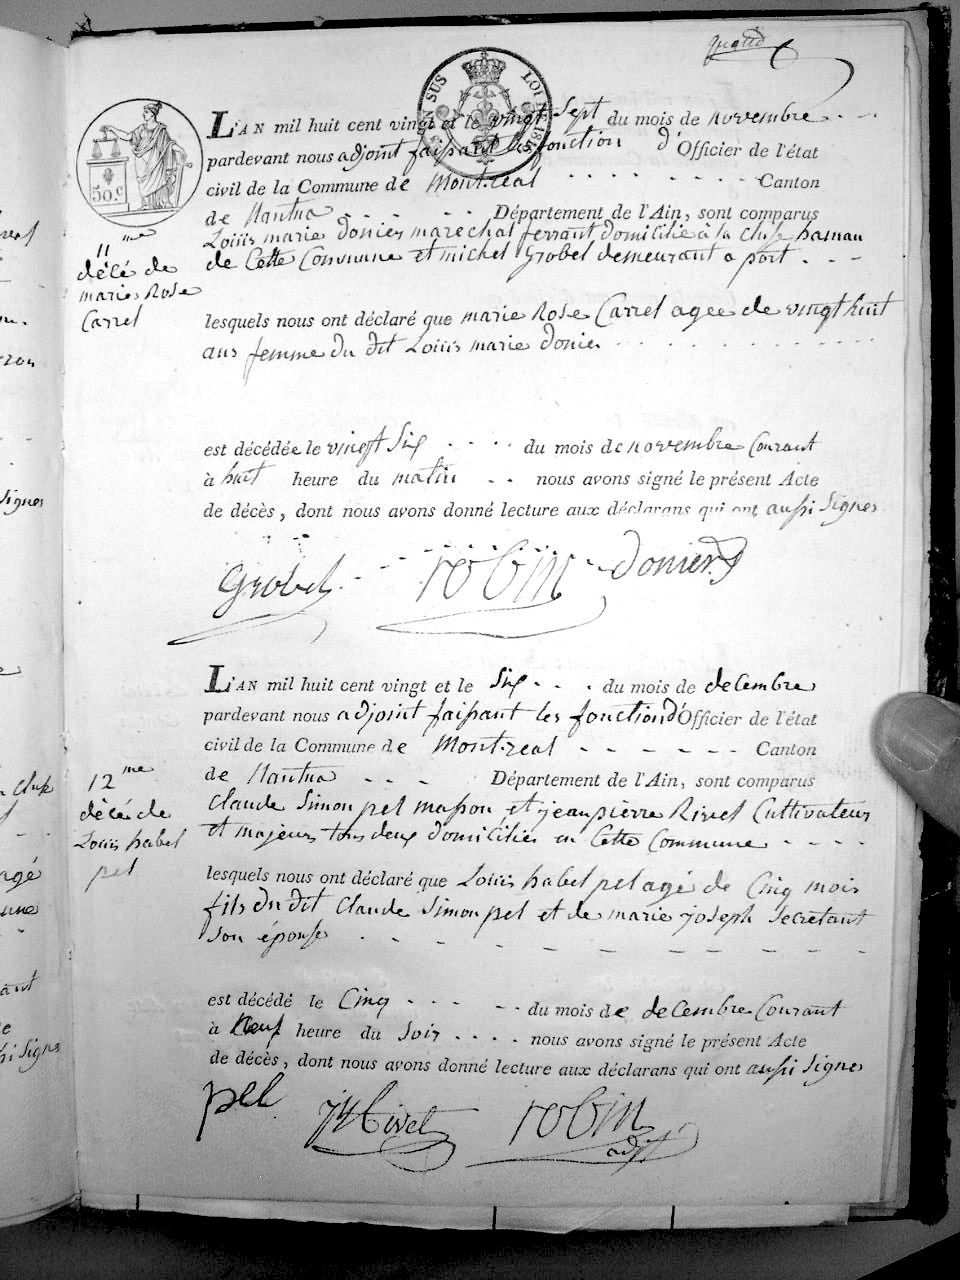 50.c
L'AN mil huit cent vingt et le vingt Sept du mois de novembre
pardevant nous adjoint faisant les fonction d'Officier de l'état
civil de la Commune de Montreal Canton
de Nantua Département de l'Ain, sont comparus
Louis marie donier marechal ferrant domicilié à la hamau
de Cette Commune et michel Grobel demeurant a port
11me
décé de
marie Rose
Carrel
lesquels nous ont déclaré que marie Rose Carrel agee de vingt huit
ans femme du dit Louis marie donier
est décédée le vingt Six du mois de novembre Courant
à huit heure du matin nous avons signé le présent Acte
de décès, dont nous avons donné lecture aux déclarans qui ont aussi Signer
Grobel robin donier
L'AN mil huit cent vingt et le Six du mois de decembre
pardevant nous adjoint faisant les fonction d'Officier de l'état
civil de la Commune de Montreal Canton
de Nantua Département de l'Ain, sont comparus
Claude Simon pel masson et jean pierre Rivel Cultivateur
et majeur tous deux domiciliés en Cette Commune
12me
décé de
Louis habel
pel
lesquels nous ont déclaré que Louis habel pel agé de Cinq mois
fils du dit Claude Simon pel et de marie joseph Secretant
Son épouse
est décédé le Cinq du mois de decembre Courant
à Neuf heure du Soir nous avons signé le présent Acte
de décès, dont nous avons donné lecture aux déclarans qui ont aussi Signer
pel Rivel robin
adjt